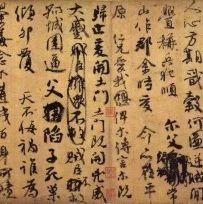 人心方期戩穀何圖逆賊閒
釁稱兵犯順爾父竭誠常
山作郡余時受命亦在平
原仁兄愛我俾爾傳言爾既
歸止爰開土門土門既開凶威
大蹙賊臣不救
孤城圍逼父陷子死巢
傾卵覆天不悔禍誰為